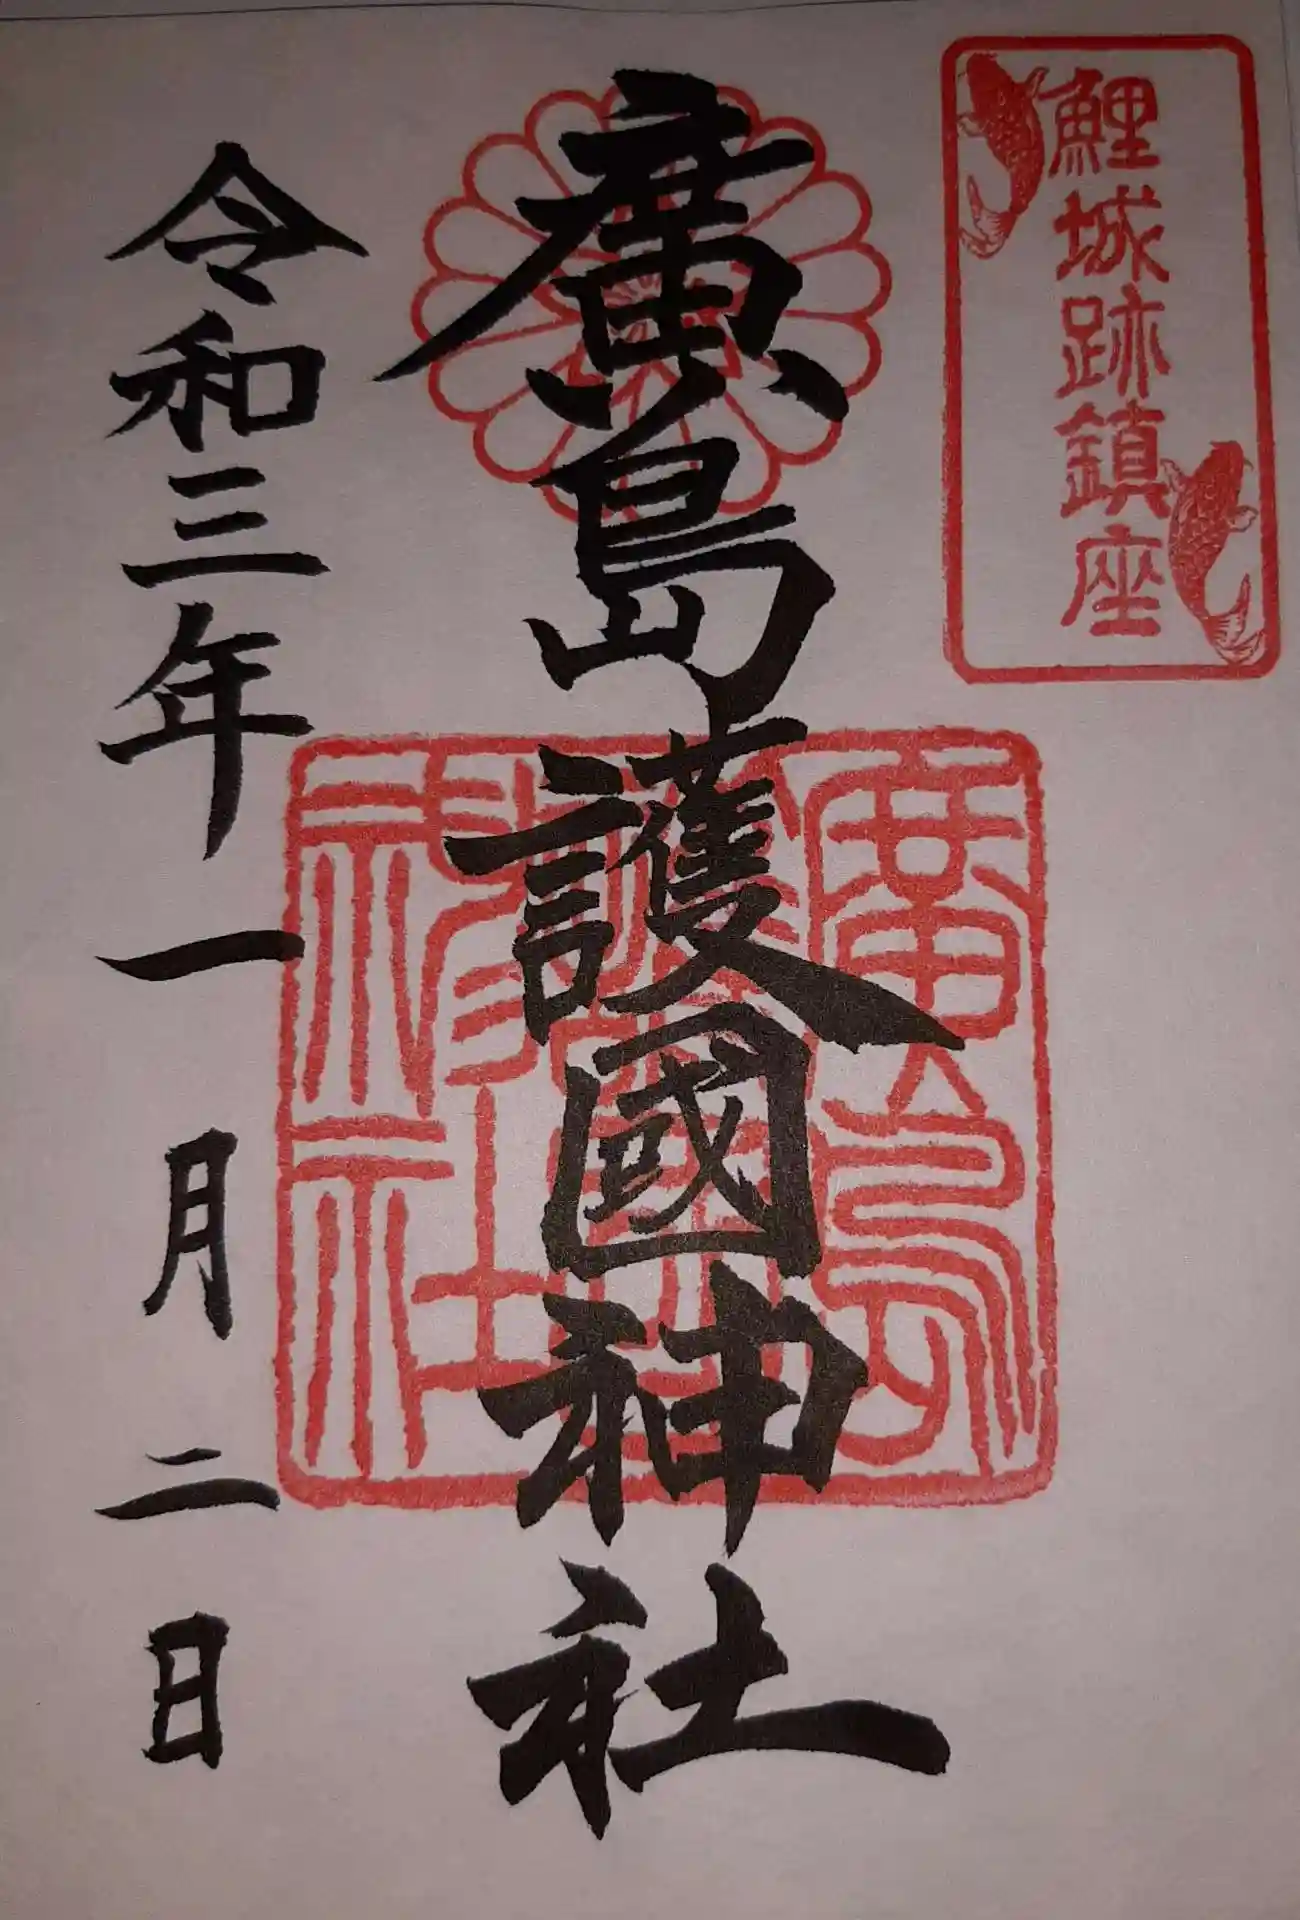 鯉城跡鎮座
廣島護國神社
廣島護國神社
令和三年一月二日